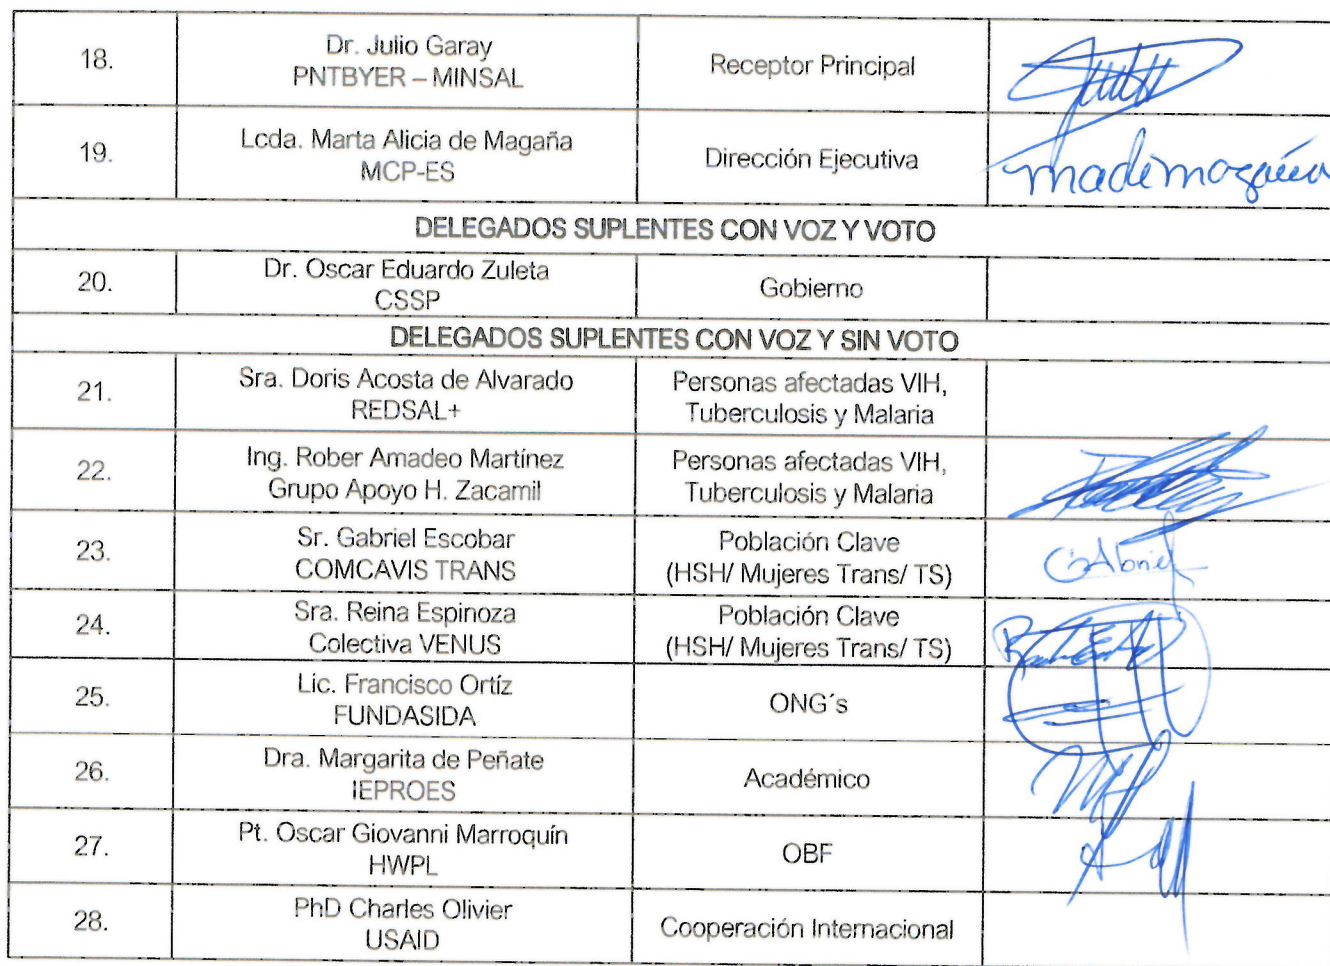 18.
Dr. Julio Garay
PNTBYER – MINSAL
Receptor Principal
19.
Lcda. Marta Alicia de Magaña
MCP-ES
Dirección Ejecutiva
DELEGADOS SUPLENTES CON VOZ Y VOTO
20.
Dr. Oscar Eduardo Zuleta
CSSP
Gobierno
DELEGADOS SUPLENTES CON VOZ Y SIN VOTO
21.
Sra. Doris Acosta de Alvarado
REDSAL+
Personas afectadas VIH,
Tuberculosis y Malaria
22.
Ing. Rober Amadeo Martínez
Grupo Apoyo H. Zacamil
Personas afectadas VIH,
Tuberculosis y Malaria
23.
Sr. Gabriel Escobar
COMCAVIS TRANS
Población Clave
(HSH/ Mujeres Trans/ TS)
GAbriel
24.
Sra. Reina Espinoza
Colectiva VENUS
Población Clave
(HSH/ Mujeres Trans/ TS)
25.
Lic. Francisco Ortíz
FUNDASIDA
ONG´s
26.
Dra. Margarita de Peñate
IEPROES
Académico
27.
Pt. Oscar Giovanni Marroquín
HWPL
OBF
28.
PhD Charles Olivier
USAID
Cooperación Internacional